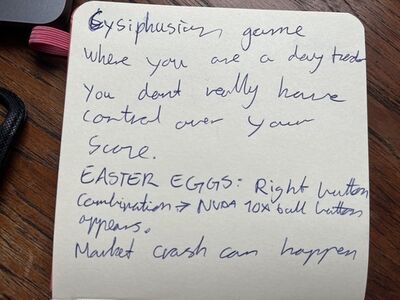 Sysiphusian game
Where you are a day trader
You dont really have
control over your
Score.
EASTER EGGS: Right button
combination → NVDA 10X bull button
appears.
Market crash can happen